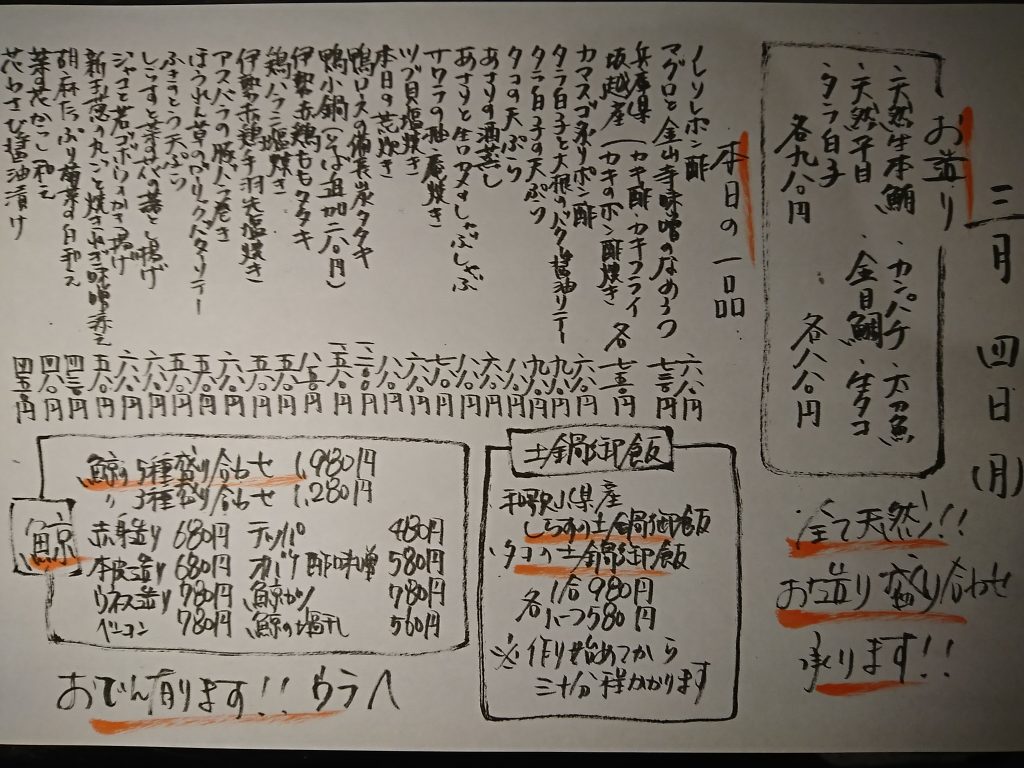 三月 四日 (月)
お造り
・天然生本鮪 ・カンパチ ・太刀魚
・天然平目 ・金目鯛 ・生タコ
・タラ白子
各九八〇円 各八八〇円
全て天然!!
お造り盛り合わせ
承ります!!
本日の一品
ノレソレポン酢 六八〇円
マグロと金山寺味噌のなめろう 七三〇円
兵庫県坂越産 (カキ酢・カキフライ カキのポン酢焼き 各七五〇円
カマスゴ炙りポン酢 六八〇円
タラ白子と大根のバター醤油ソテー 九八〇円
タラ白子の天ぷら 九八〇円
タコの天ぷら 八八〇円
あさりの酒蒸し 六八〇円
あさりと生ワカメのしゃぶしゃぶ 八八〇円
サワラの柚庵焼き 七八〇円
ツブ貝塩焼き 六八〇円
本日の荒炊き 八八〇円
鴨ロースの備長炭タタキ
鴨小鍋 (そば追加二八〇円)
伊勢赤鶏ももタタキ 八五〇円
鶏ハラミ塩焼き 五八〇円
伊勢赤鶏手羽先塩焼き 五八〇円
アスパラの豚バラ巻き 六八〇円
ほうれん草のガーリックバターソテー 五八〇円
ふきのとう天ぷら 五八〇円
しらすと
ジャコと若ゴボウのかき揚げ 六八〇円
新玉葱の丸ごと焼き ねぎ味噌添え 五八〇円
胡麻たっぷり菊菜の白和え 四三〇円
菜の花からし和え 四八〇円
花わさび醤油漬け 四五〇円
土鍋御飯
和歌山県産
しらすの土鍋御飯
・タコの土鍋御飯
各 1合 980円
ハーフ580円
※作り始めてから
三十分程かかります
鯨
鯨の5種盛り合わせ 1,980円
〃 3種盛り合わせ 1,280円
赤身造り 680円 テッパ 480円
本皮造り 680円 オバケ酢味噌 580円
ウネス造り 780円 鯨カツ 780円
ベーコン 780円 鯨の塩干し 560円
おでん有ります!! ウラへ